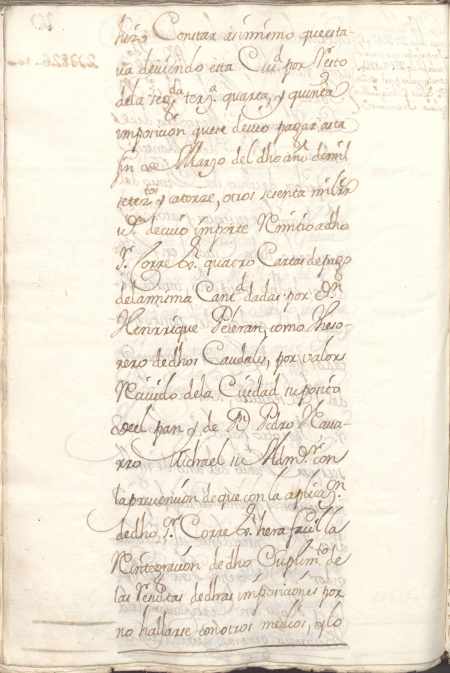 hizo Constar asimismo que esta-
va deviendo esta Ciud por Resto
dela segda terza quarta, y quinta
imposicion que se devio pagar asta
fin de Marzo del dho año de mil
setezos y catorze, otros sesenta mil
Rs. de cuio importe Remitio adho
Sr. Corregr. quatro Cartas de pago
dela misma Cantd dadas por Dn.
Henrrique Peieran, como Theso-
rero de dhos Caudales, por valor
Recivido dela Ciudad su posito
del pan y de Dn Pedro Nava-
rro Michael su Admr. con
la prevencion de que con la aplicazn.
de dho Sr. Corregr. hera facil la
Reintegracion de dho Cuplimto de
las Rentas de dhas imposiciones por
no hallarse con otros medios, y lo